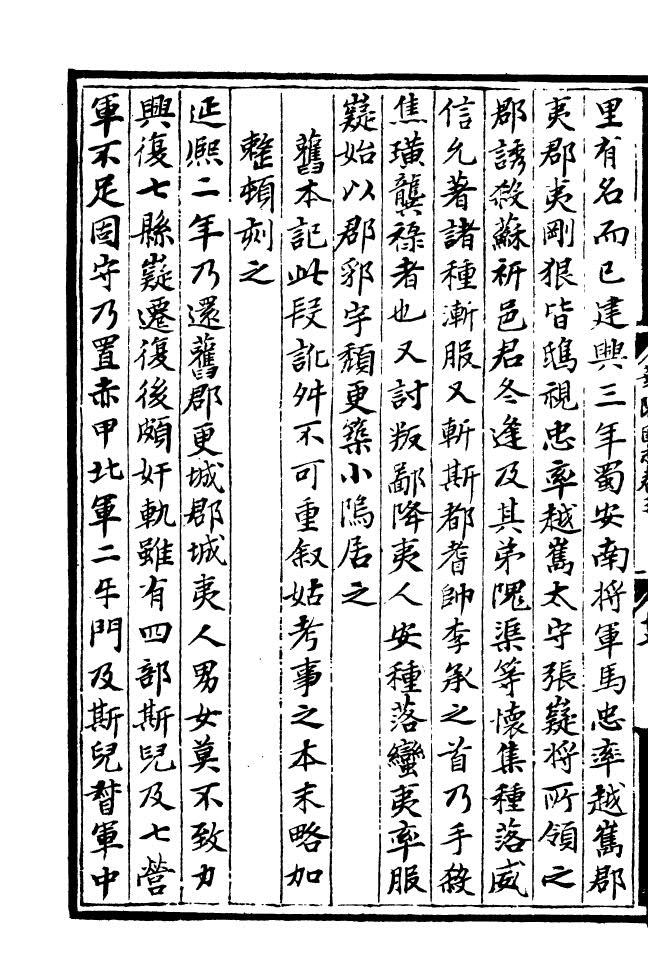 里有名而已建興三年蜀安南将軍馬忠率越嶲郡
夷郡夷剛狠皆鴟視忠率越嶲太守張嶷将所領之
郡誘殺蘇祈邑君冬逢及其弟隗渠等懷集種落威
信允著諸種漸服又斬斯都耆帥李承之首乃手殺
焦璜龔祿者也又討叛鄙降夷人安種落蠻夷率服
嶷始以郡郛宇頹更築小隖居之
舊本記此段訛舛不可重叙姑考事之本末略加
整頓刻之
延熈二年乃還舊郡更城郡城夷人男女莫不致力
興復七縣嶷遷復後頗奸軌雖有四部斯兒及七營
軍不足固守乃置赤甲北軍二牙門及斯兒督軍中